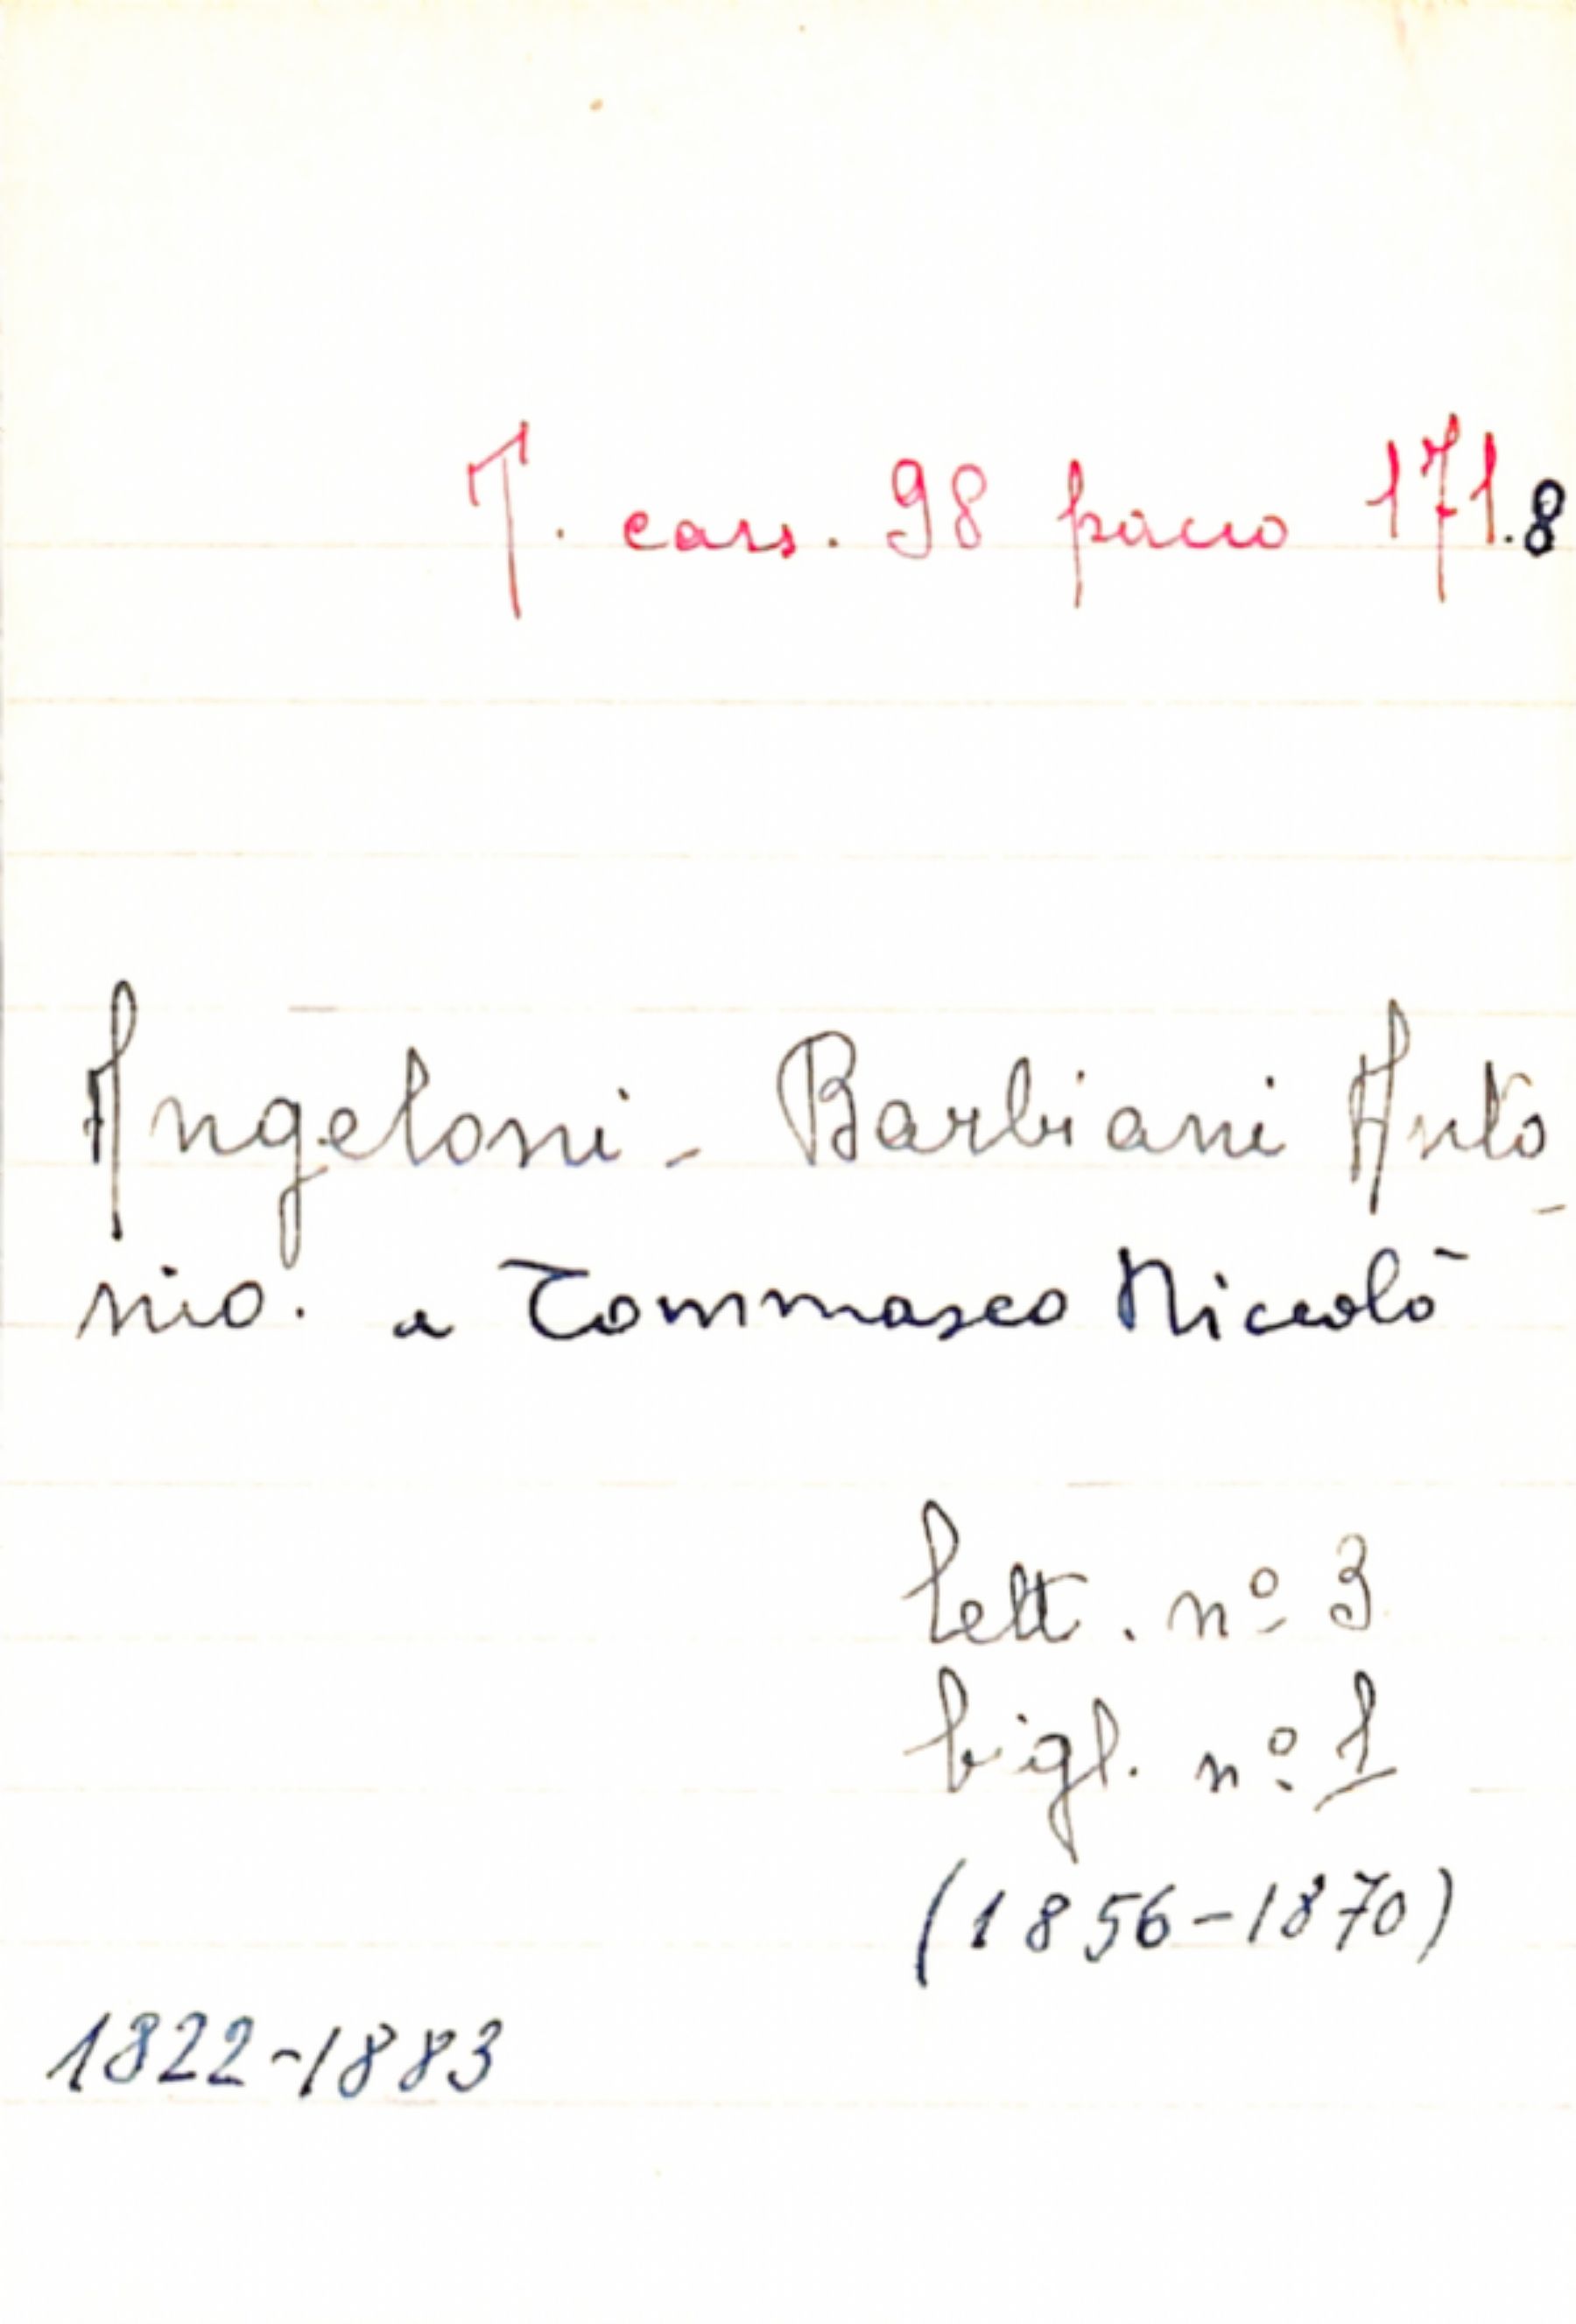 T. cass. 98 pacco 171.8
Angeloni - Barbiani Anto-
nio. a Tommaseo Niccolò
lett. nº 3
bigl. nº 1
(1856-1870)
1822-1883